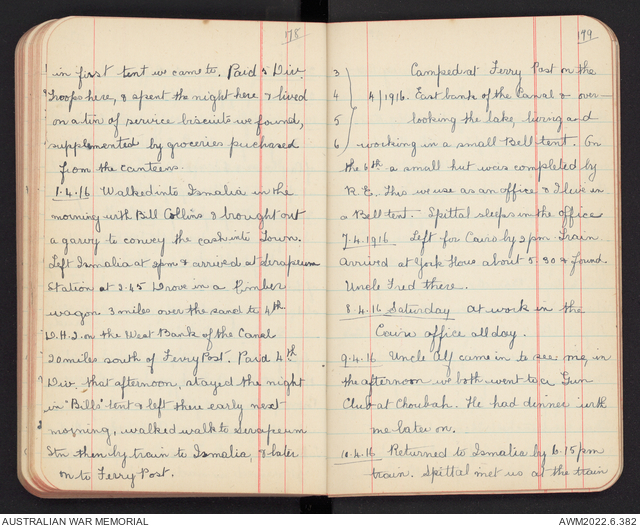 178
in first tent we came to. Paid 5 Div.
Troops here, & spent the night here & lived
on a tin of service biscuits we found,
supplemented by groceries purchased
from the canteens.
1.4.16 Walked into Ismalia in the
morning with Bill Collins & brought out
a garry to convey the cash into Town.
Left Ismalia at 2pm & arrived at Serapeum
Station at 2.45 Drove in a limber
wagon 3 miles over the sand to 4th
D.H.Q. on the West Bank of the Canal
20 miles south of Ferry Post. Paid 4th
Div. that afternoon, stayed the night
in "Bills" tent & left there early next
morning, walked walk to Serapeum
Stn then by train to Ismalia, & later
on to Ferry Post.
179
3 Camped at Ferry Post on the
4 4/1916. East bank of the Canal & over-
5 looking the lake, living and
6 working in a small Bell tent. On
the 6th a small hut was completed by
R.E. This we use as an office & I live in
a Bell tent. Spittal sleeps in the office
7.4.1916 Left for Cairo by 2pm Train
Arrived at York House about 5.30 & found
Uncle Fred there.
8.4.16 Saturday at work in the
Cairo office all day.
9.4.16 Uncle Alf came in to see me, in
the afternoon we both went to a Gun
Club at Choubah. He had dinner with
me later on.
10.4.16 Returned to Ismalia by 6.15pm
train. Spittal met us at the train
AUSTRALIAN WAR MEMORIAL
AWM2022.6.382